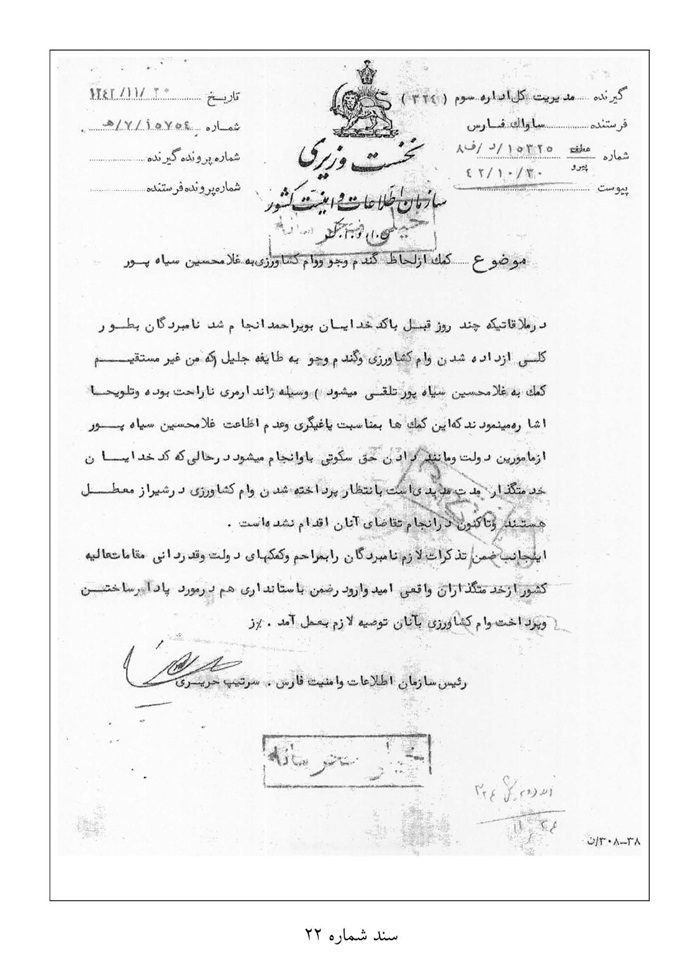 گیرنده مدیریت کل اداره سوم (۳۲۴)
فرستنده ساواك فارس
شماره ۱۵۳۲۵/د/ف۸
عطف
پیرو ۴۲/۱۰/۳۰
پیوست
نخست وزیری
سازمان اطلاعات و امنیت کشور
س.ا.و.ا.ك
تاریخ ۱۳۴۲/۱۱/۲۰
شماره ۱۵۷۵۴/۷/ه
شماره پرونده گیرنده
شماره پرونده فرستنده
خیلی محرمانه
موضوع كمك ازلحاظ گندم وجو ووام کشاورزی به غلامحسین سیاه پور
درملاقاتیکه چند روز قبل باکدخدایان بویراحمد انجام شد نامبردگان بطور
کلی ازداده شدن وام کشاورزی وگندم وجو به طایفه جلیل (که من غیر مستقیم
كمك به غلامحسین سیاه پور تلقی میشود) وسیله ژاندارمری ناراحت بوده وتلویحا
اشاره مینمودندکه این كمك ها بمناسبت یاغیگری وعدم اطاعت غلامحسین سیاه پور
ازمامورین دولت ومانند دادن حق سکوتی باوانجام میشود درحالی که کدخدایان
خدمتگذار مدت مدیدی است بانتظار پرداخته شدن وام کشاورزی درشیراز معطل
هستند وتاکنون درانجام تقاضای آنان اقدام نشده است .
اینجانب ضمن تذکرات لازم نامبردگان رابمراحم وکمکهای دولت وقدردانی مقامات عالیه
کشور ازخدمتگذاران واقعی امیدوار ودرضمن باستانداری هم درمورد پاداش ساختن
وپرداخت وام کشاورزی بآنان توصیه لازم بعمل آمد . %ز
رئیس سازمان اطلاعات وامنیت فارس . سرتیپ حریری
خیلی محرمانه
۳۲۴
۱۱/۲۴
۳۸-۳۰۸/ن
سند شماره ۲۲